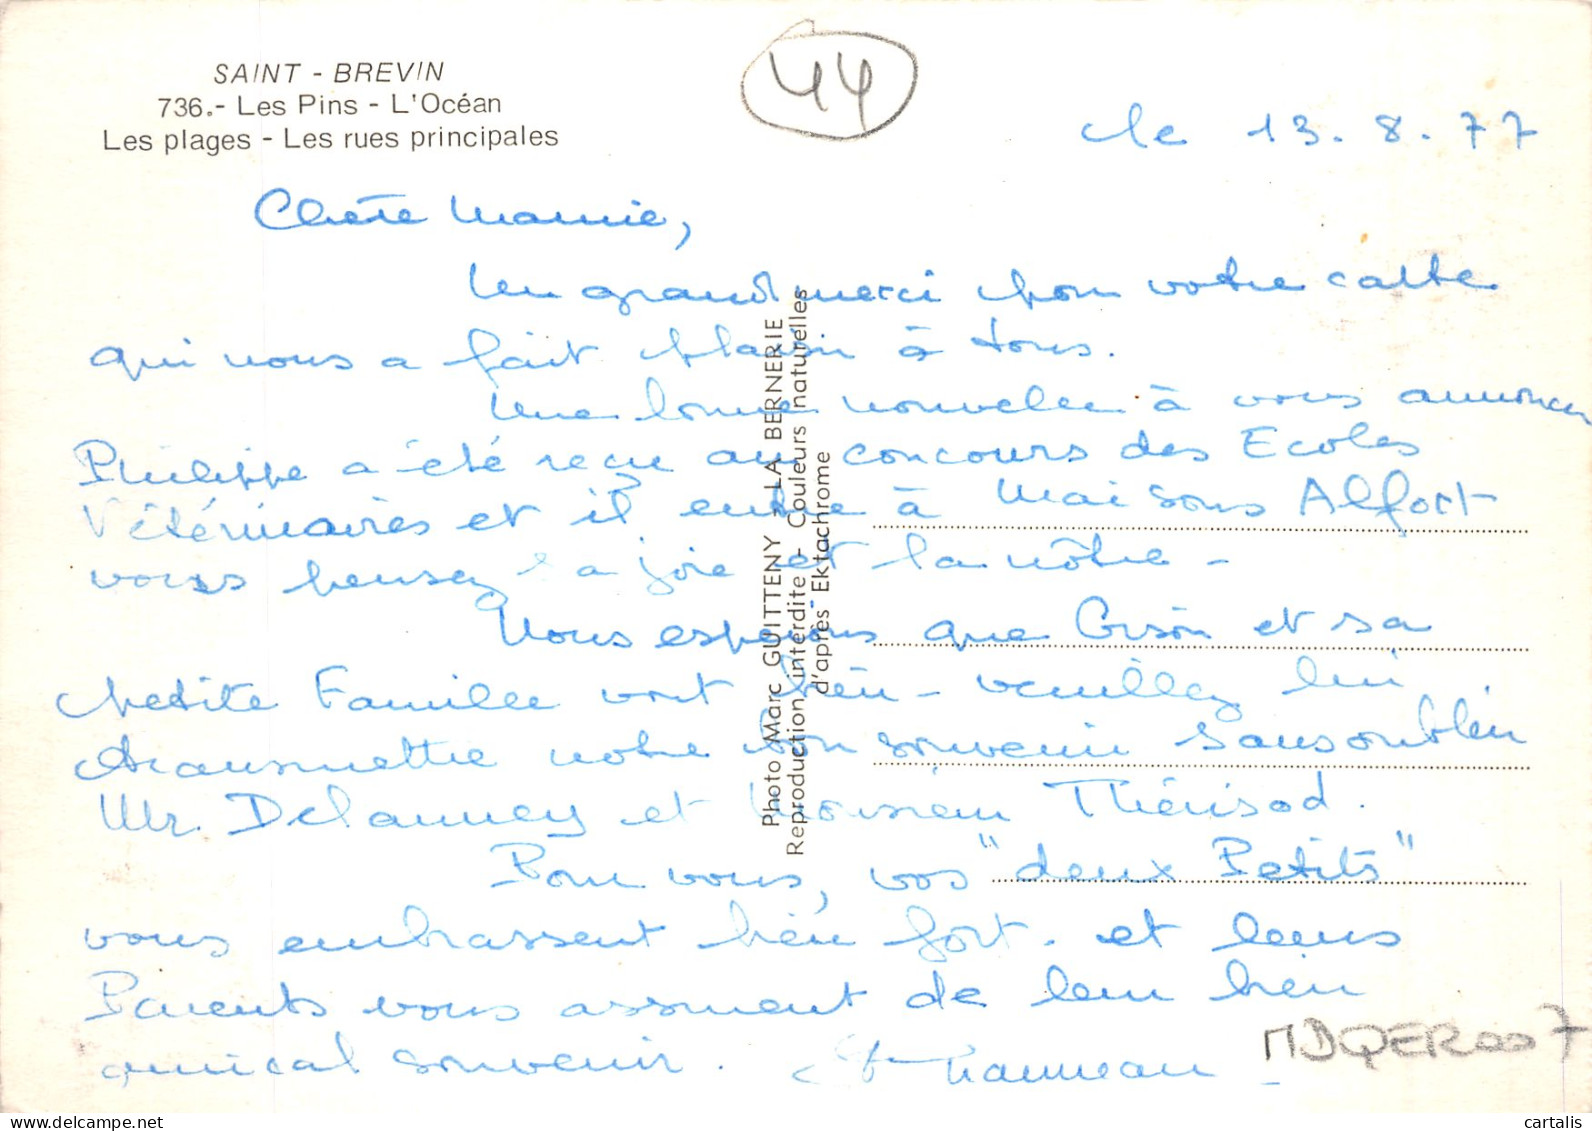 SAINT - BREVIN
736.- Les Pins - L'Océan
Les plages - Les rues principales
44
le 13.8.77
Chère Mamie,
Un grand merci pour votre carte
qui nous a fait plaisir à tous.
Une bonne nouvelle à vous annoncer
Philippe a été reçu au concours des Ecoles
Vétérinaires et il entre à Maisons Alfort
vous pensez sa joie et la nôtre -
Nous espérons que et sa
petite Famille vont bien - veuillez lui
transmettre notre bon souvenir sans oublier
Mr. Delanney et Monsieur Thérisod.
Pour vous, vos "deux Petits"
vous embrassent bien fort. et leurs
Parents vous assurent de leur bien
amical souvenir.
Photo Marc GUITTENY - LA BERNERIE
Reproduction interdite - Couleurs naturelles
d'après Ektachrome
MDQER0007
delcampe.net
cartalis